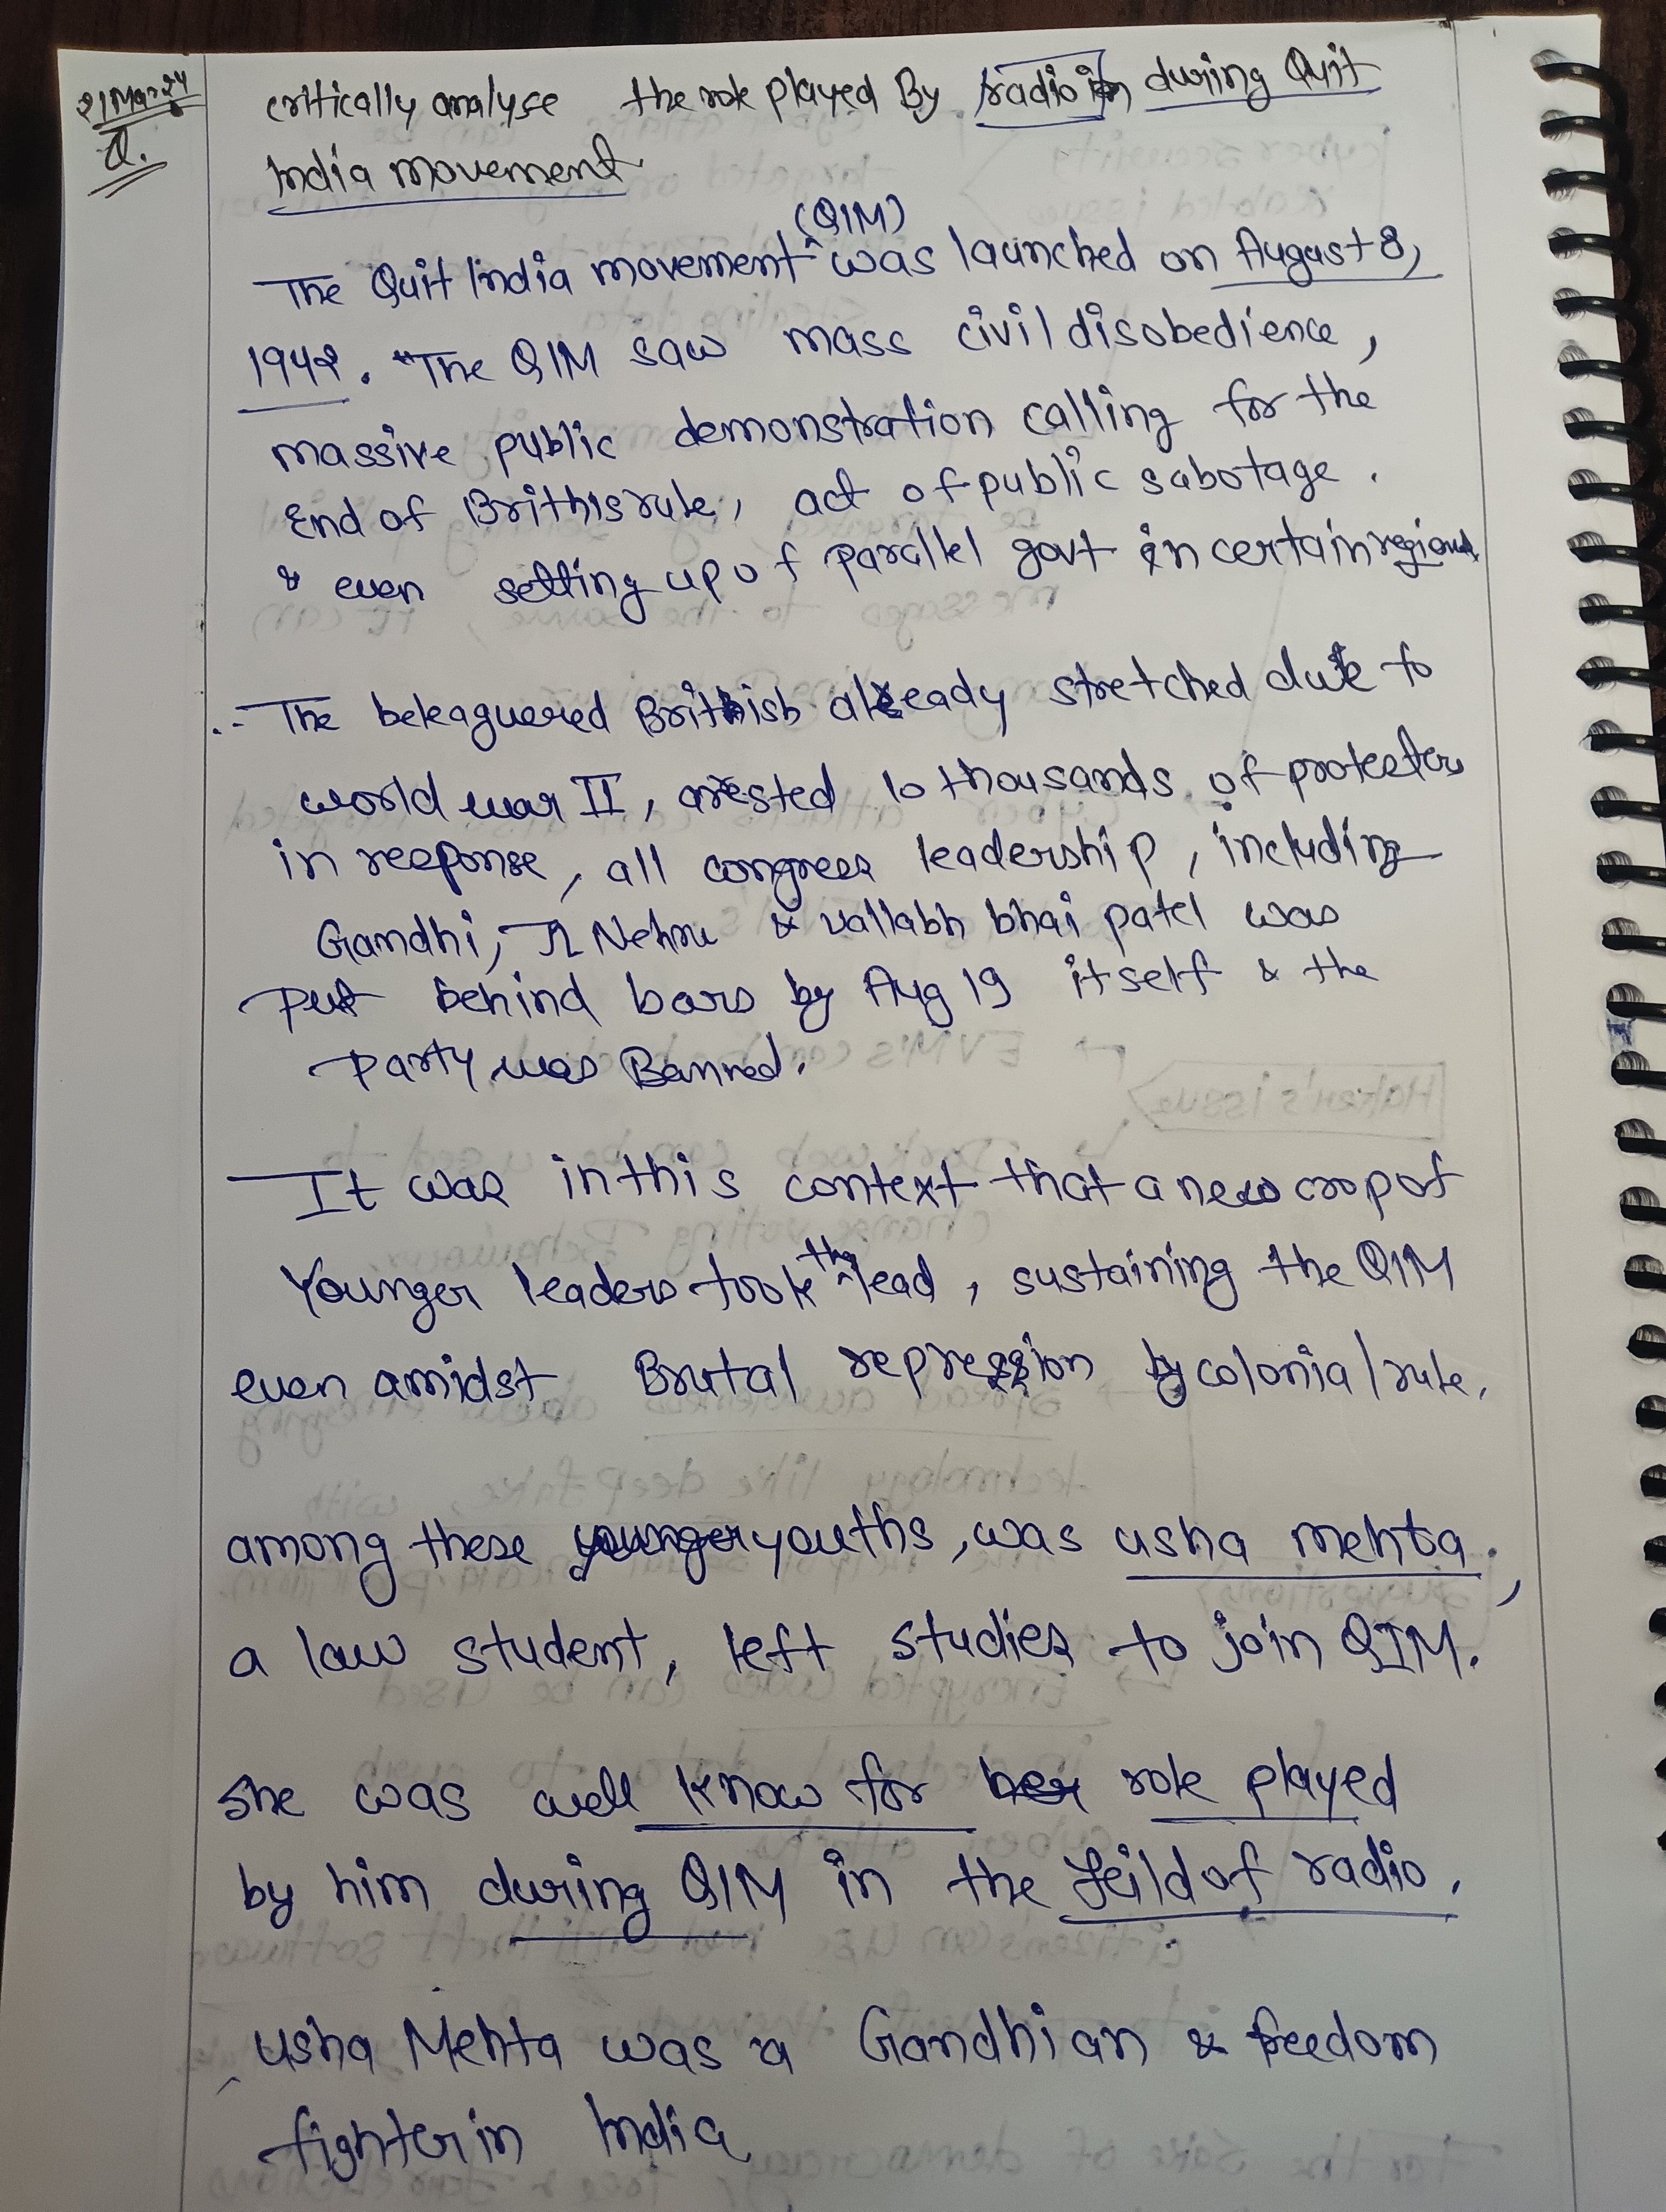 21Mar24
Q.
critically analyse the role played By radio in during Quit
India movement
(QIM)
The Quit India movement was launched on August 8,
1942. The QIM saw mass civil disobedience,
massive public demonstration calling for the
End of Brithis rule, act of public sabotage.
& even setting up of parallel govt in certain regions
The beleaguered British already stretched due to
world war II, arrested 10 thousands of protesters
in response, all congress leadership, including
Gandhi, JL Nehru & vallabh bhai patel was
Put behind bars by Aug 19 itself & the
Party was Banned.
It was in this context that a new crop of
Younger leaders took the lead, sustaining the QIM
even amidst Brutal repression by colonial rule.
among these younger youths, was usha mehta,
a law student, left studies to join QIM.
She was well know for her role played
by him during QIM in the feild of radio.
usha Mehta was a Gandhian & freedom
fighter in India